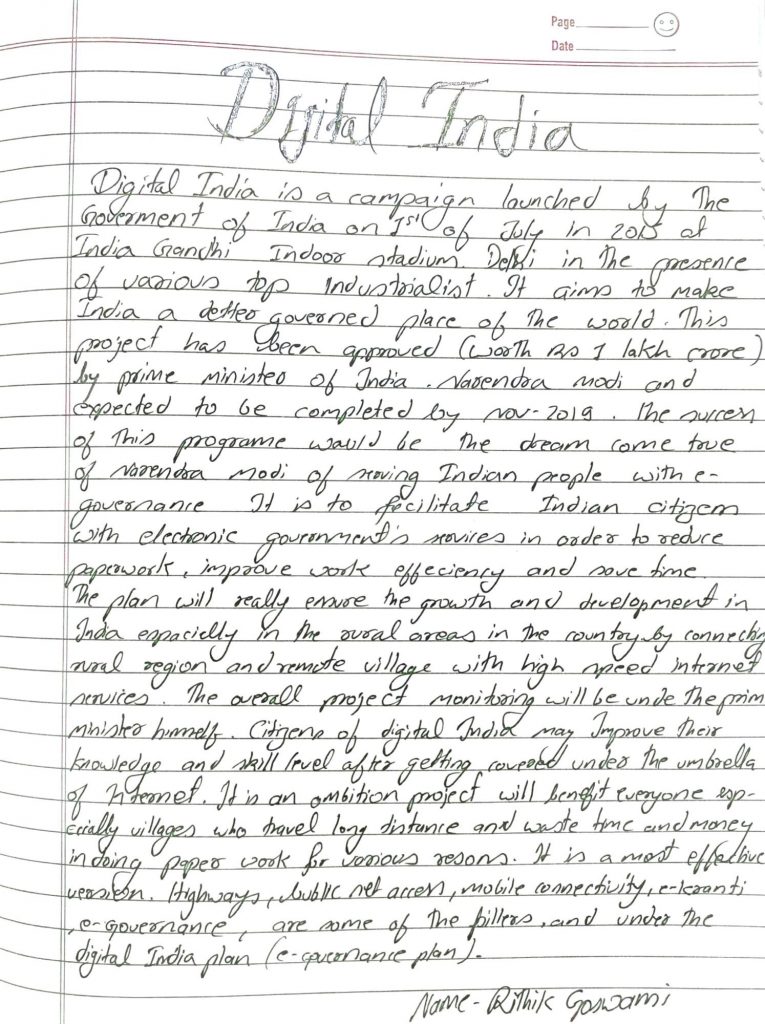 Page
Date
Digital India
Digital India is a campaign launched by The
Goverment of India on 1st of July in 2015 at
India Gandhi Indoor stadium. Delhi in the presence
of various top Industrialist. It aims to make
India a better governed place of the world. This
project has been approved (worth Rs 1 lakh crore)
by prime minister of India. Narendra modi and
expected to be completed by nov-2019. The success
of this programe would be the dream come true
of Narendra modi of serving Indian people with e-
governance It is to facilitate Indian citizen
with electronic government's services in order to reduce
paperwork, improve work effeciency and save time.
The plan will really ensure the growth and development in
India espacielly in the rural areas in the country by connecting
rural region and remote village with high speed internet
services. The overall project monitoring will be unde the prim
minister himself. Citizens of digital India may Improve their
knowledge and skill level after getting covered under the umbrella
of Internet. It is an ambition project will benefit everyone esp-
ecially villages who travel long distance and waste time and money
in doing paper work for various resons. It is a most effective
version. Highways, public net access, mobile connectivity, e-kranti
, e-governance, are some of the pillers, and under the
digital India plan (e-governance plan).
Name - Rithik Goswami